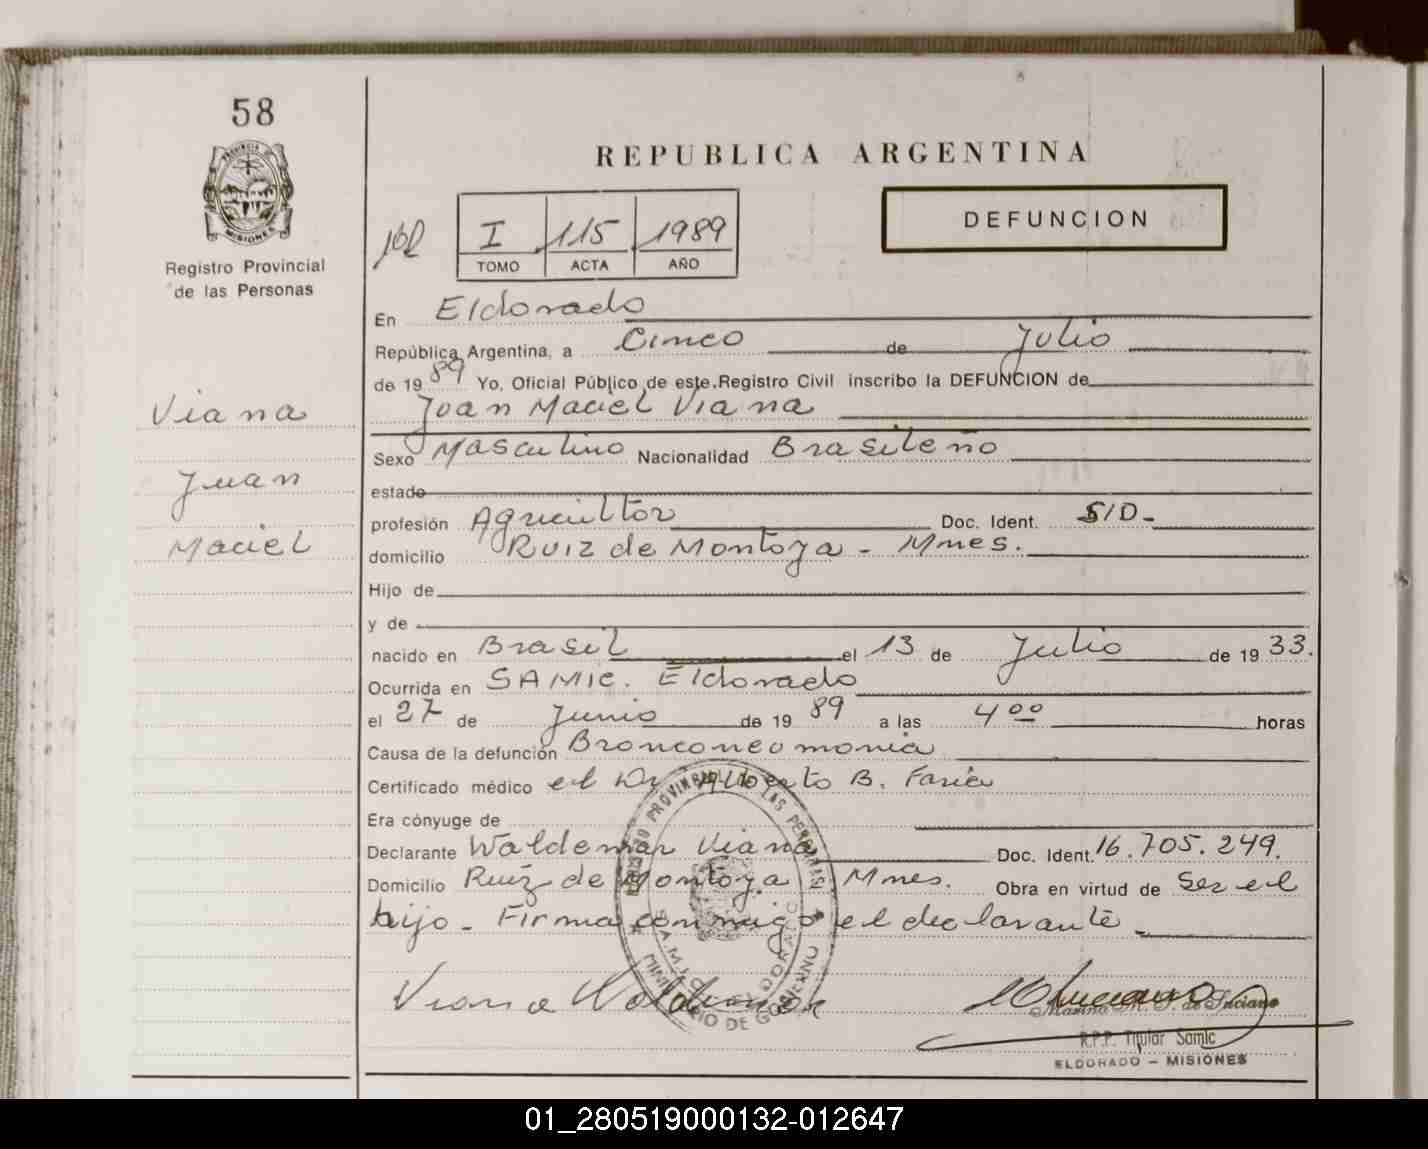 58
PROVINCIA DE
MISIONES
Registro Provincial
de las Personas
Viana
Juan
Maciel
REPUBLICA ARGENTINA
DEFUNCION
I 115 1989
TOMO ACTA AÑO
En Eldorado
República Argentina, a Cinco de Julio
de 1989 Yo, Oficial Público de este Registro Civil inscribo la DEFUNCION de
Juan Maciel Viana
Sexo Masculino Nacionalidad Brasileño
estado
profesión Agricultor Doc. Ident. S/D-
domicilio Ruiz de Montoya - Mnes.
Hijo de
y de
nacido en Brasil el 13 de Julio de 1933.
Ocurrida en SAMIC. Eldorado
el 27 de Junio de 1989 a las 4 00 horas
Causa de la defunción Bronconeumonia
Certificado médico el Dr Alberto B. Faria
Era cónyuge de
Declarante Waldemar Viana Doc. Ident. 16.705.249.
Domicilio Ruiz de Montoya Mnes. Obra en virtud de Ser el
hijo - Firma conmigo el declarante
Viana Waldemar
REGISTRO PROVINCIAL DE LAS PERSONAS
S.A.M.I.C. ELDORADO
MINISTERIO DE GOBIERNO
Marina M. S. de Luciano
R.P.P. Titular Samic
ELDORADO - MISIONES
01_280519000132-012647